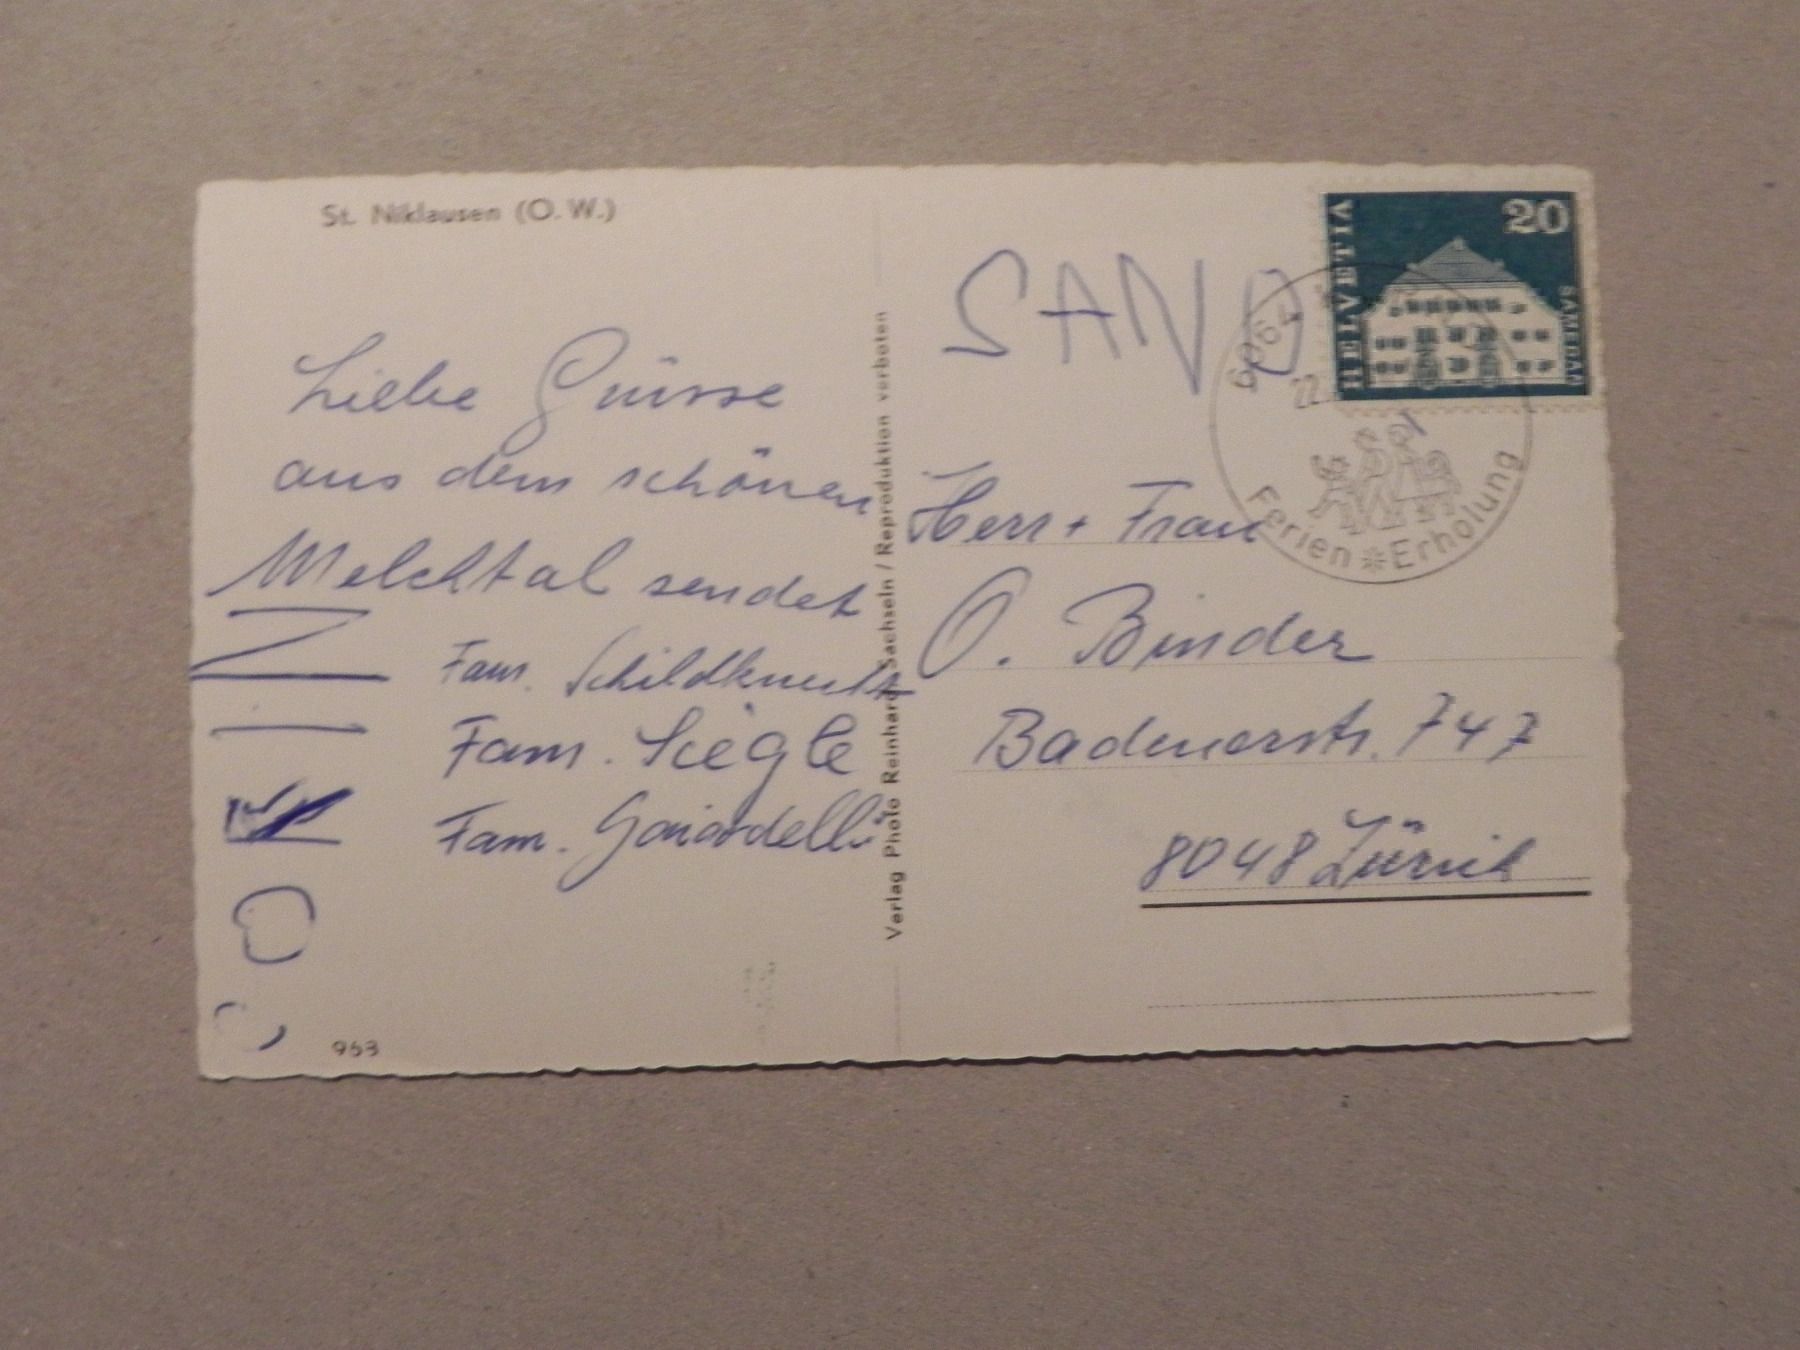 St. Niklausen (O. W.)
Liebe Grüsse
aus dem schönen
Melchtal sendet
Fam. Schildknecht
Fam. Siegle
Fam. Gaiardelli
963
Verlag Photo Reinhard, Sachseln / Reproduktion verboten
HELVETIA
20
SAMEDAN
6064
22
Ferien * Erholung
Herr + Frau
O. Binder
Badenerstr. 747
8048 Zürich